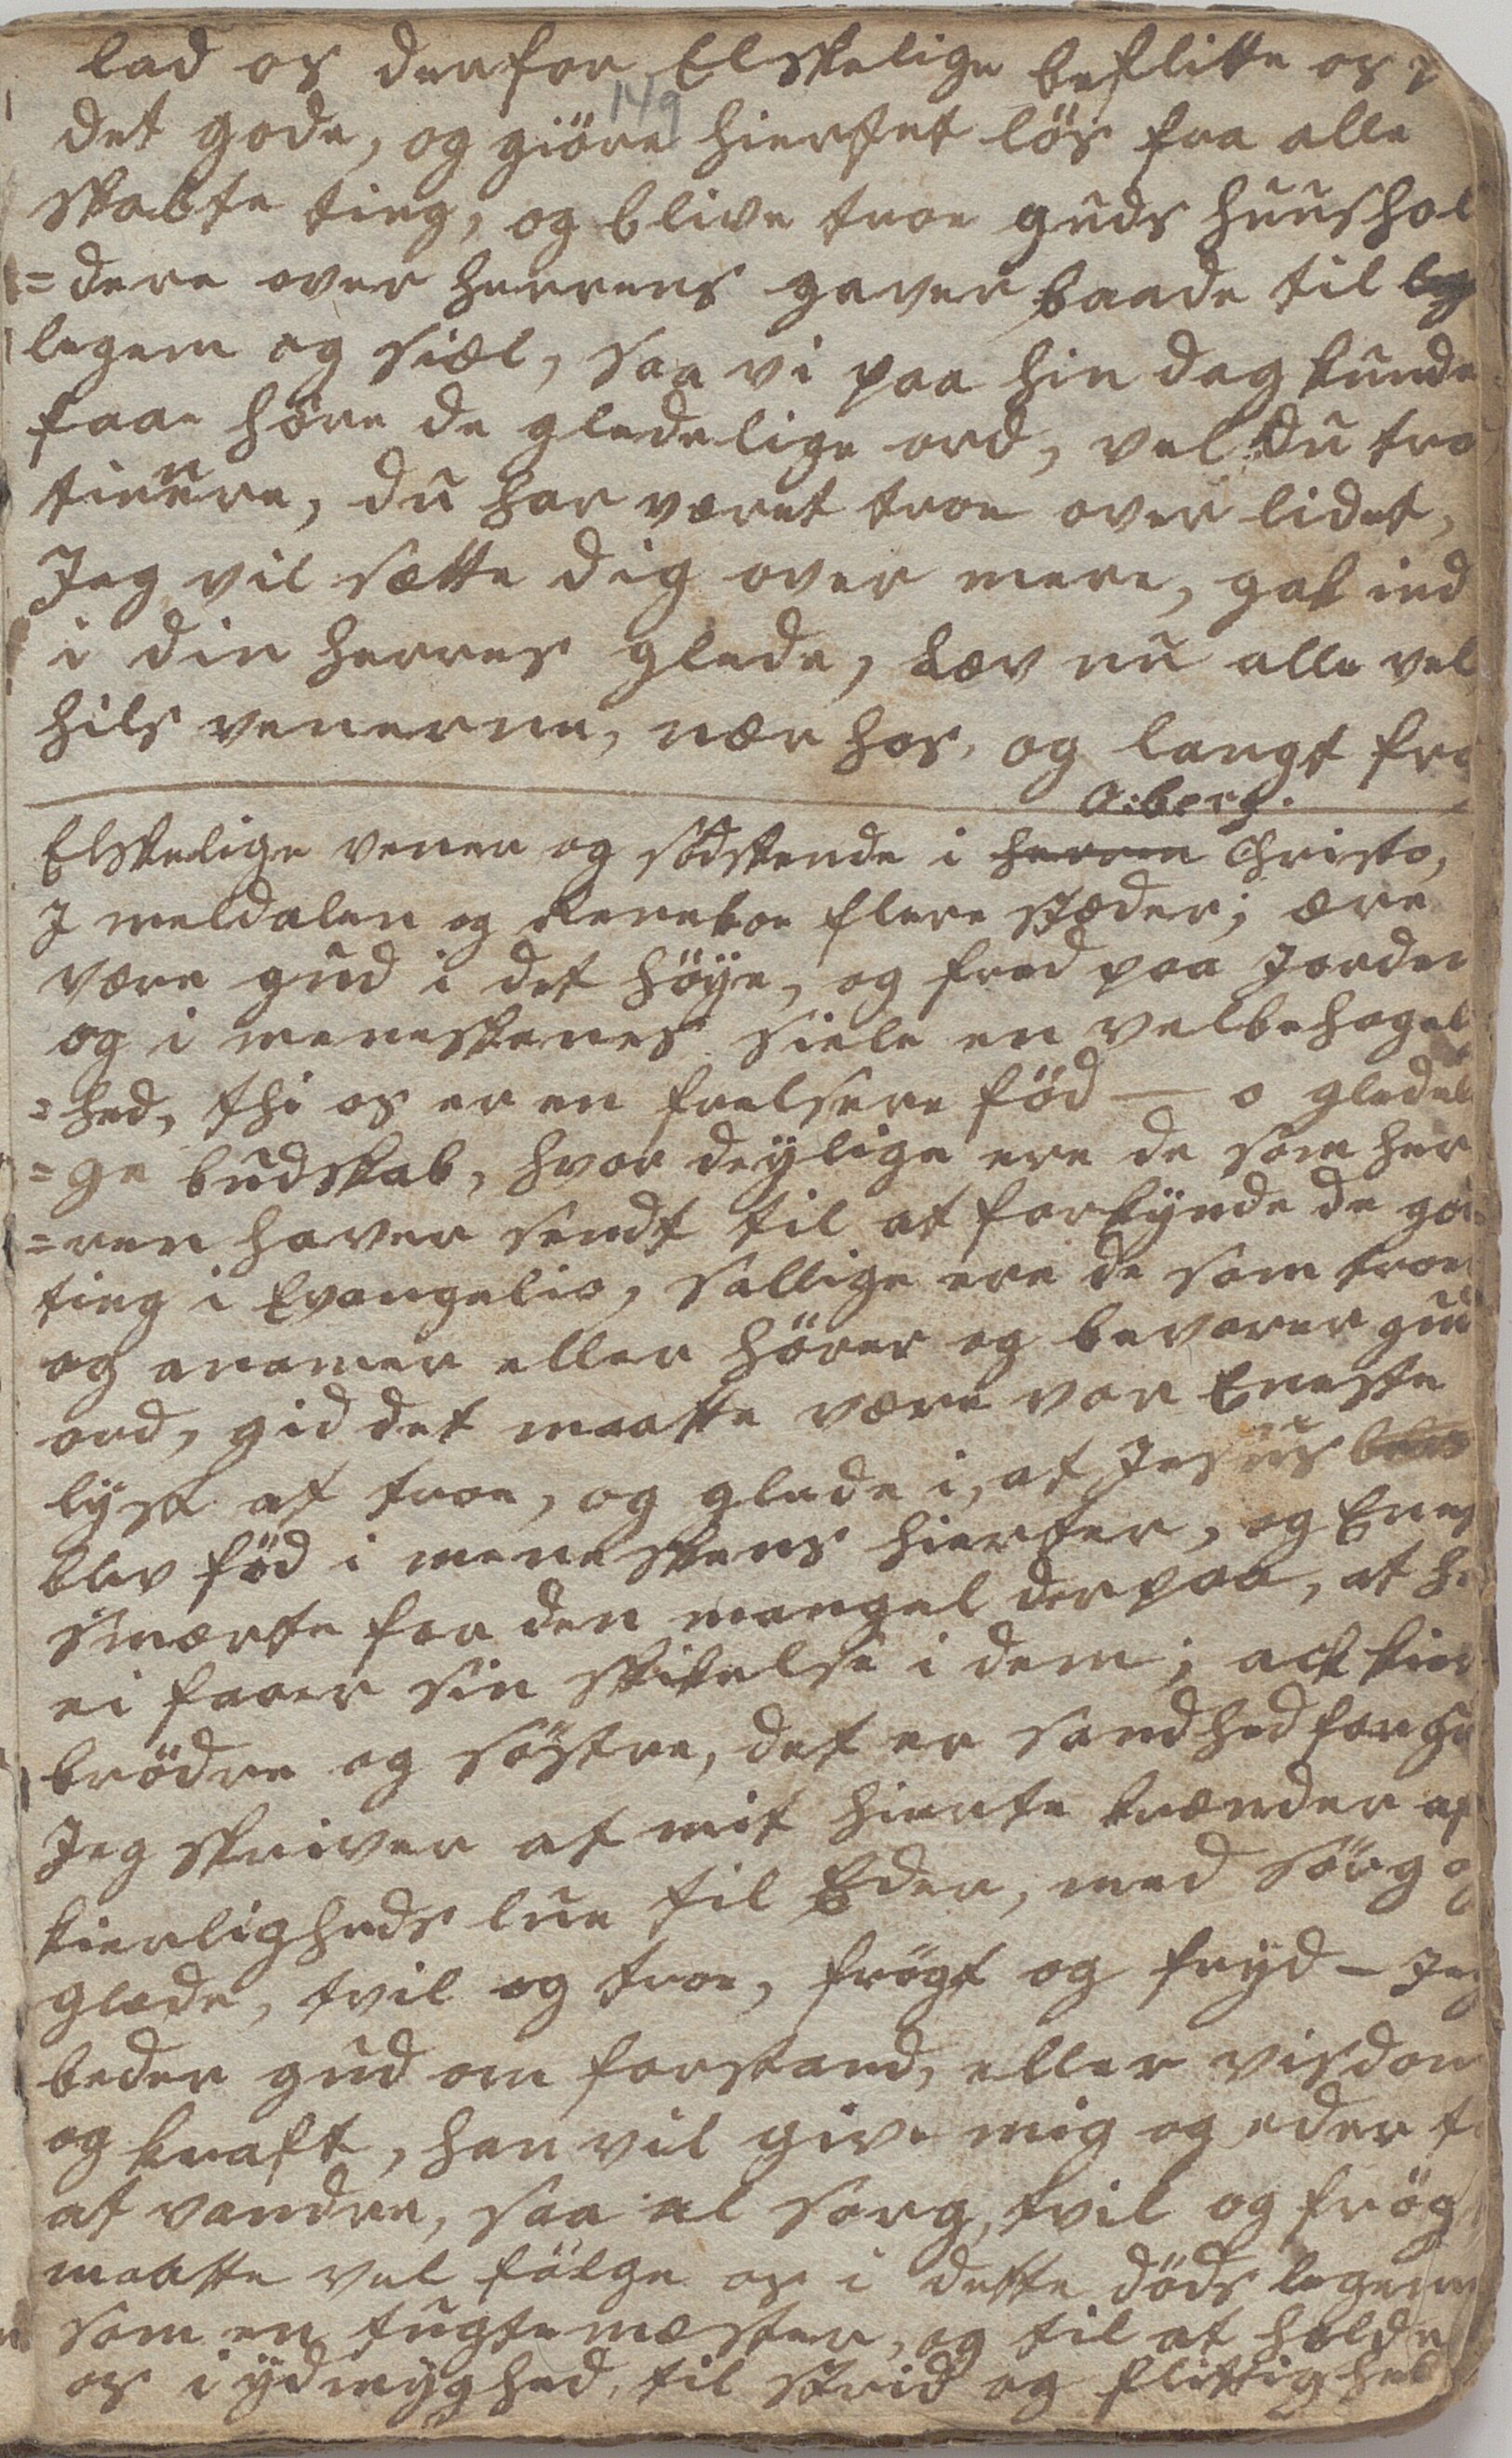 lad os derfor Elskelige beflitte os p
149
det gode, og giöre hiertet lös fra alle
skabte ting, og blive troe guds huushol
=dere over herrens gaver baade til
legem og siæl, saa vi paa hin dag kunde
faae höre de gledelige ord, vel du tro
tienere, du har været troe over lidet,
Jeg vil sætte dig over mere, gak ind
i din herres glede, Læv nu alle vel
hils venerne, nær hos, og langt fra
A: berg.
Elskelige vener og södskende i herren Christo,
I meldalen og Reneboe flere stæder; ære
være gud i det höye, og fred paa Jorden
og i meneskenes siele en velbehagel
=hed, thi os er en frelsere föd — o gledeli
=ge budskab, hvor deylige ere de som her
=ren haver sendt til at forkynde de gode
ting i Evangelio, sallige ere de som troer
og anamer eller hörer og bevarer guds
ord, gid det maatte være vor Eneste
lyst at troe, og glede i, at Jesus
blev föd i meneskens hierter, og Enes
smærte for den mangel derpaa, at h
ei faaer sin skikelse i dem; ack kiere
brödre og söstre, det er sandhed for gud
Jeg skriver at mit hierte brænder af
kierligheds lue til Eder, med sorg og
glæde, tvil og troe, frögt og fryd – Jeg
beder gud om forstand, eller visdom
og kraft, han vil give mig og eder til
at vandre, saa al sorg, tvil og frögt
maatte vel fölge os i dette döds legeme
som en tugtemæster, og til at holde
os i ydmyghed, til strid og flittighed